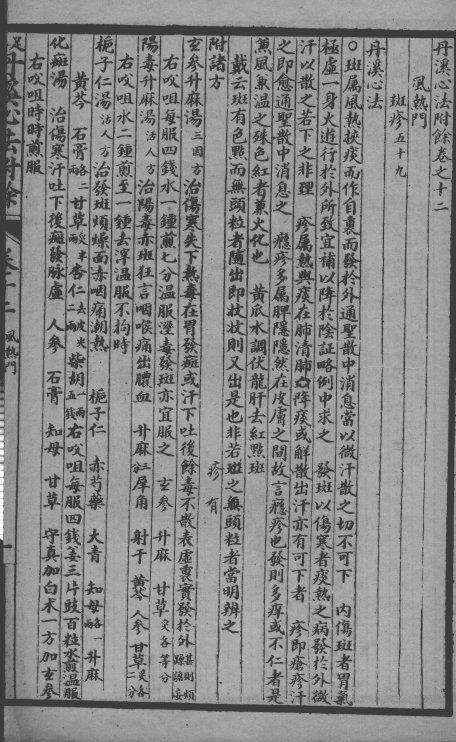 丹溪心法附餘卷之十二
風熱門
斑疹五十九
丹溪心法
○斑属風熱挾痰而作自裏而發於外通聖散中消息當以微汗散之切不可下　內傷斑者胃氣
極虛一身火遊行於外所致宜補以降於陰証略例中求之　發斑以傷寒者痰熱之病發於外微
汗以散之若下之非理　疹属熱與痰在肺清肺火降痰或解散出汗亦有可下者　疹即瘡疹汗
之即愈通聖散中消息之　癮疹多属脾隱隱然在皮膚之間故言癮疹也發則多痒或不仁者是
兼風兼溫之殊色紅者兼火化也　黄瓜水調伏龍肝去紅點斑
戴云斑有色點而無頭粒者隨出即
則又出是也非若斑之無頭粒者當明辨之　疹有
附諸方
玄參升麻湯　治傷寒失下熱毒在胃發斑或汗下吐後餘毒不散表虛裏實發於外甚則煩
右㕮咀每服四錢水一鍾煎七分温服溼毒發斑亦宜服之　玄參　升麻　甘草炙各等分
陽毒升麻湯活人方治陽毒赤斑狂言咽喉痛出膿血　升麻　犀角　射干　黄芩　人參　甘草炙各二分
右㕮咀水二鍾煎至一鍾去滓温服不拘時
梔子仁湯活人方治發斑煩燥面赤咽痛潮熱　梔子仁　赤芍藥　大青　知母各一兩　升麻
黄芩　石膏各二兩　甘草炙半兩　杏仁二兩　柴胡　右㕮咀每服四錢姜三片豉百粒水煎温服
化斑湯　治傷寒汗吐下後斑發脉虛　人參　石膏　知母　甘草　守真加白术一方加玄參
右㕮咀時時煎服
丹溪心法附餘　卷十二　風熱門　一